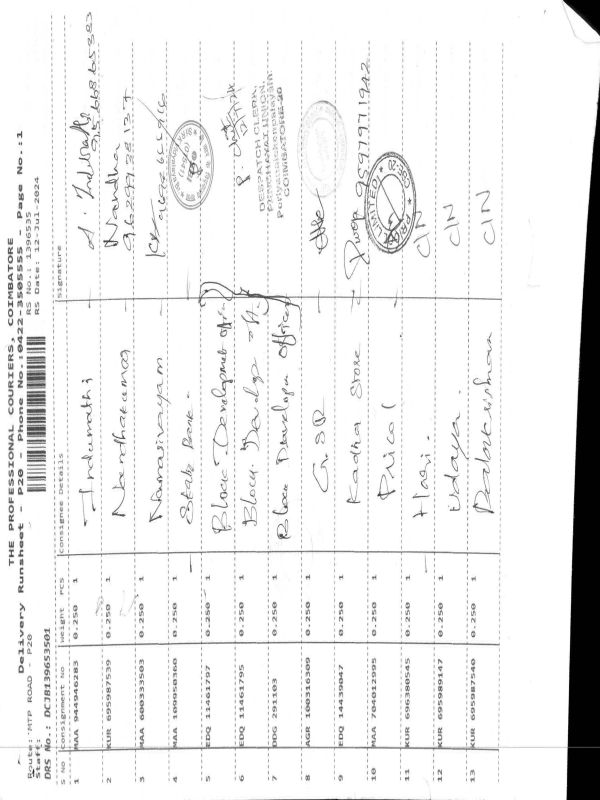 THE PROFESSIONAL COURIERS, COIMBATORE
Delivery Runsheet - P20 - Phone No.:0422-3505555 - Page No.:1
Route: MTP ROAD - P20
Staff:
RS No.: 1396535
DRS No.: DCJB139653501
RS Date: 12-Jul-2024
S No Consignment No Weight PCS Consignee Details Signature
1 MAA 944946283 0.250 1 Indumathi
2 KUR 695987539 0.250 1 Nandhakumar Nandha
3 MAA 600333503 0.250 1 Namasivayam
4 MAA 109950360 0.250 1 State Bank
5 EDQ 11461797 0.250 1 Block Development
6 EDQ 11461795 0.250 1 Block Develop
DESPATCH CLERK,
PANCHAYAT UNION,
COIMBATORE-20
7 DDG 291103 0.250 1 Block Develop Officer
8 AGR 100316309 0.250 1
9 EDQ 14439047 0.250 1 Radha Store 9597971942
10 MAA 704012995 0.250 1 Pricol
LIMITED
11 KUR 696380545 0.250 1 Hari C/N
12 KUR 695989147 0.250 1 Udaya C/N
13 KUR 695987540 0.250 1 C/N